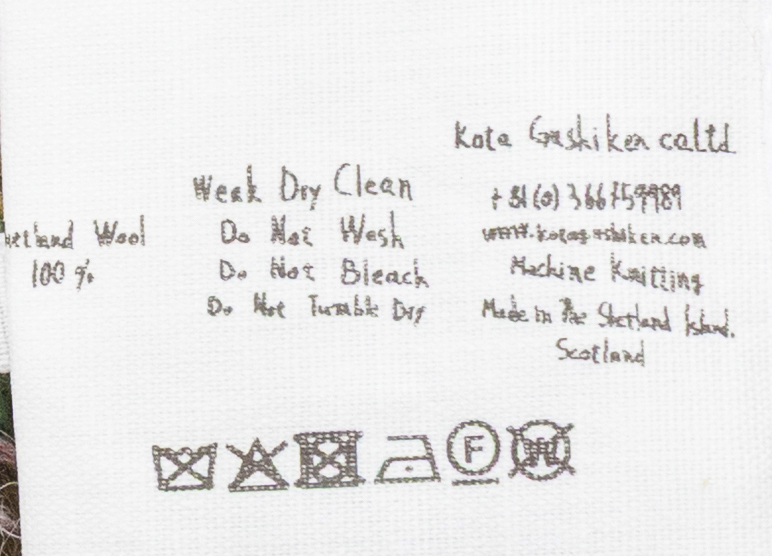 Wool
100 %
Weak Dry Clean
Do Not Wash
Do Not Bleach
Do Not Tumble Dry
Kota Gushiken co.ltd.
+81(0)366759989
www.kotagushiken.com
Machine Knitting
Made in The Shetland Island.
Scotland
F
W